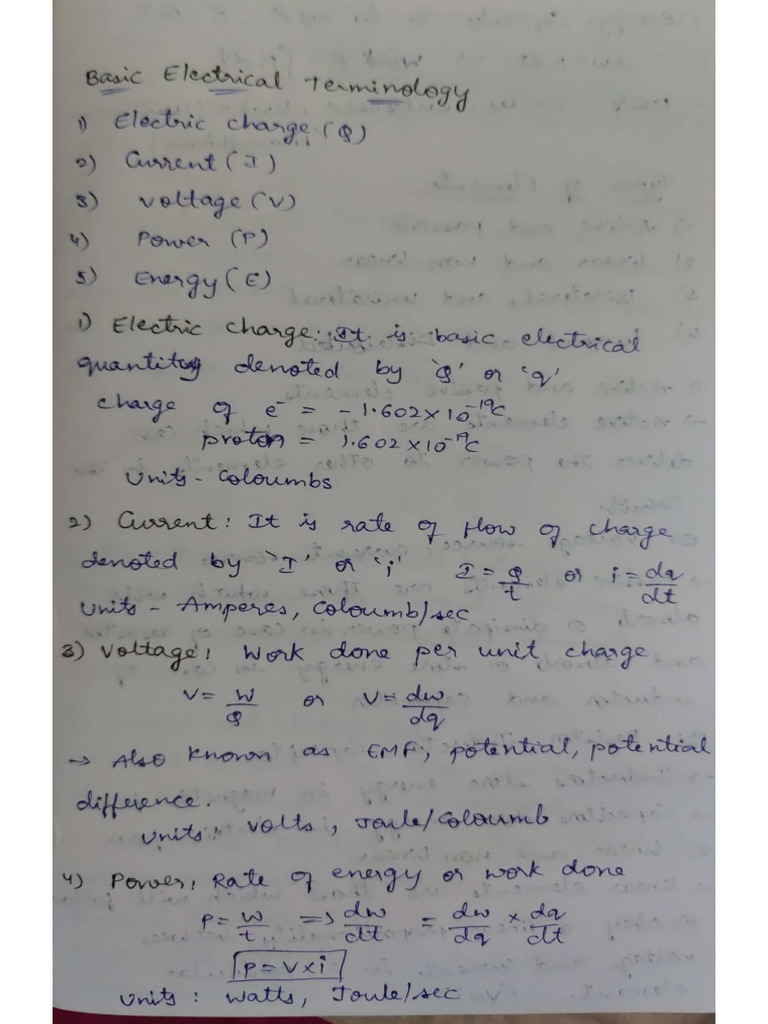 Basic Electrical Terminology
1) Electric charge (Q)
2) Current (I)
3) Voltage (V)
4) Power (P)
5) Energy (E)
1) Electric charge: It is basic electrical
quantity denoted by 'Q' or 'q'
charge of e⁻ = -1.602×10⁻¹⁹C
proton = 1.602×10⁻¹⁹C
Units - Coloumbs
2) Current: It is rate of flow of charge
denoted by 'I' or 'i' I = Q/t or i = dq/dt
Units - Amperes, Coloumb/sec
3) Voltage: Work done per unit charge
V = W/Q or V = dw/dq
→ Also known as EMF, potential, potential
difference.
Units: Volts, Joule/Coloumb
4) Power: Rate of energy or work done
P = W/t => dw/dt = dw/dq × dq/dt
P = V×i
Units: Watts, Joule/sec